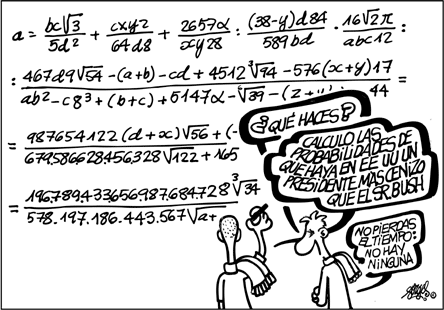 a = bc√3/5d² + cxy2/64d8 + 2657α/xy28 : (38-y)d84/589bd · 16√2π/abc12 :
: 467d9√54 - (a+b) - cd + 4512 ³√94 - 576(x+y)17 / ab² - c8³ + (b+c) + 5147α - √39 - (z+y) 44 =
= 987654122 (d+x)√56 + (- / 679586628456328√122 + 165
= 196.789.433656.987.684.728 ³√34 / 578.197.186.443.567√a+
¿QUÉ HACES?
CALCULO LAS
PROBABILIDADES DE
QUE HAYA EN EE UU UN
PRESIDENTE MÁS CENIZO
QUE EL SR. BUSH
NO PIERDAS
EL TIEMPO:
NO HAY
NINGUNA